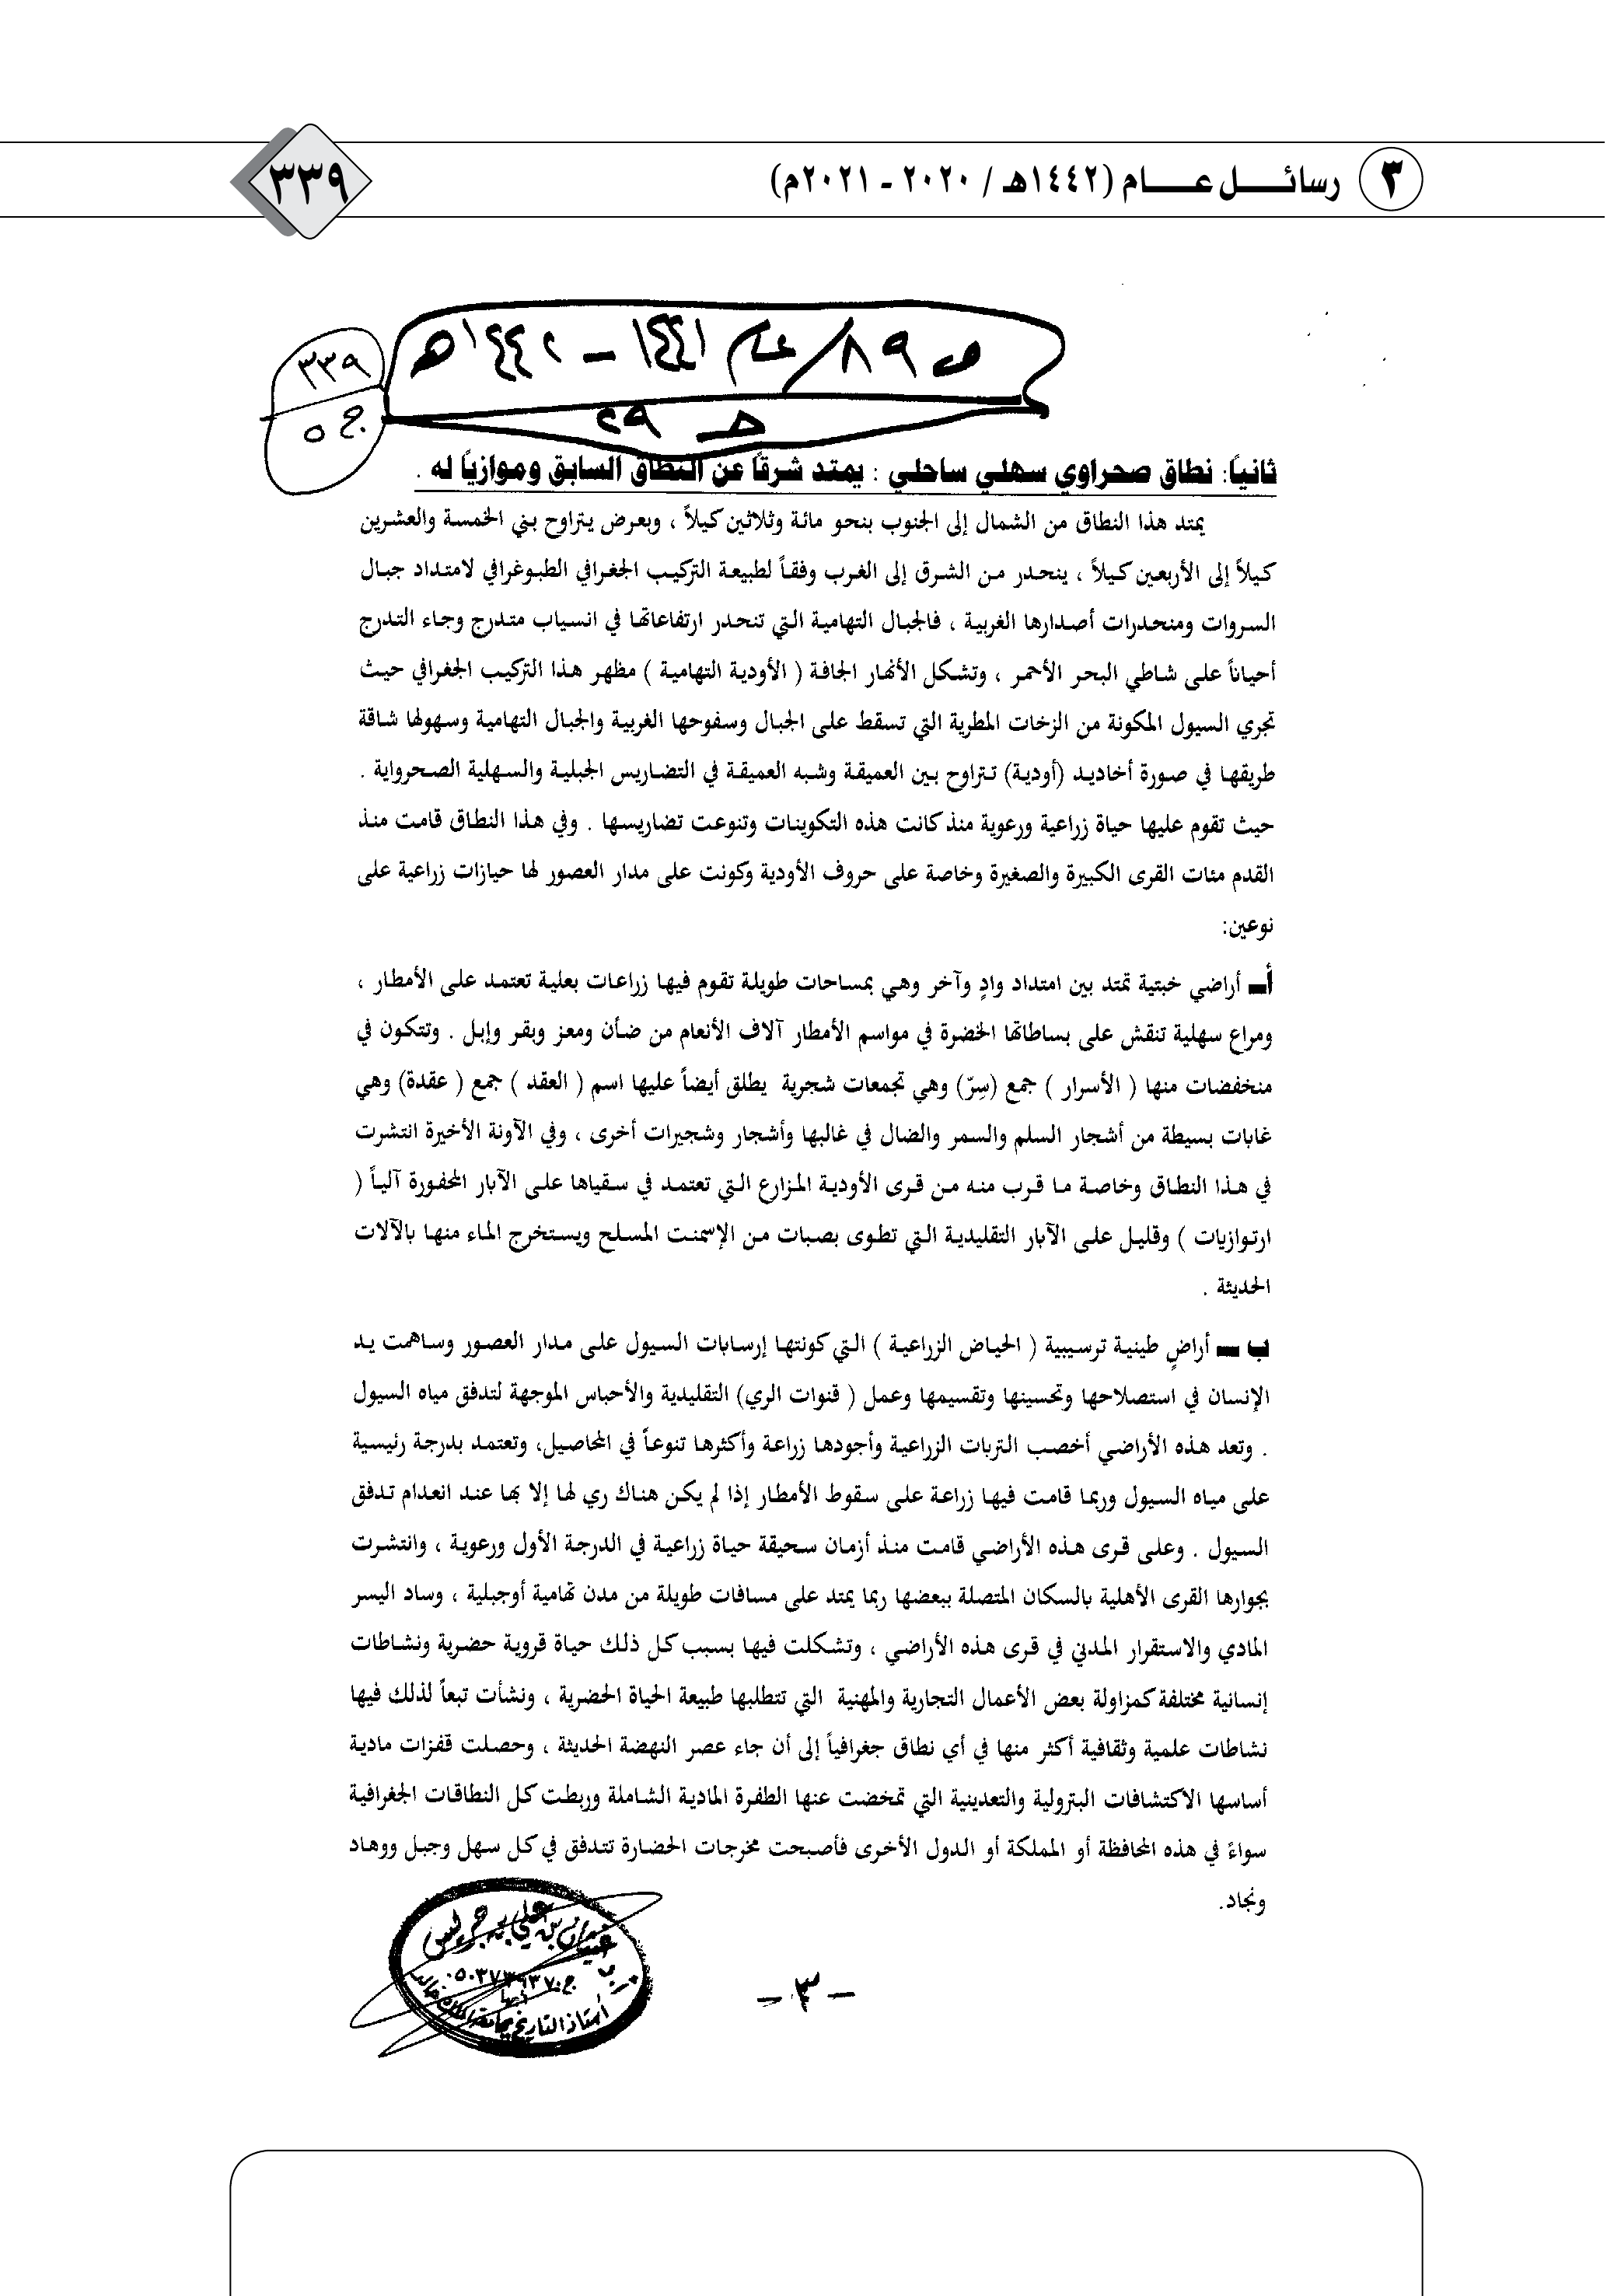 ٣ رسائــــل عـــــام (١٤٤٢هـ / ٢٠٢٠ - ٢٠٢١م)
٣٣٩
ص ٨٩/ عام ١٤٤١ - ١٤٤٢هـ
٣٣٩
ج ٥
ثانياً: نطاق صحراوي سهلي ساحلي : يمتد شرقاً عن النطاق السابق وموازياً له .
يمتد هذا النطاق من الشمال إلى الجنوب بنحو مائة وثلاثين كيلاً ، وبعرض يتراوح بني الخمسة والعشرين
كيلاً إلى الأربعين كيلاً ، ينحدر من الشرق إلى الغرب وفقاً لطبيعة التركيب الجغرافي الطبوغرافي لامتداد جبال
السروات ومنحدرات أصدارها الغربية ، فالجبال التهامية التي تنحدر ارتفاعاتها في انسياب متدرج وجاء التدرج
أحياناً على شاطي البحر الأحمر ، وتشكل الأنهار الجافة ( الأودية التهامية ) مظهر هذا التركيب الجغرافي حيث
تجري السيول المكونة من الزخات المطرية التي تسقط على الجبال وسفوحها الغربية والجبال التهامية وسهولها شاقة
طريقها في صورة أخاديد (أودية) تتراوح بين العميقة وشبه العميقة في التضاريس الجبلية والسهلية الصحرواية .
حيث تقوم عليها حياة زراعية ورعوية منذ كانت هذه التكوينات وتنوعت تضاريسها . وفي هذا النطاق قامت منذ
القدم مئات القرى الكبيرة والصغيرة وخاصة على حروف الأودية وكونت على مدار العصور لها حيازات زراعية على
نوعين:
أ– أراضي خبتية تمتد بين امتداد وادٍ وآخر وهي بمساحات طويلة تقوم فيها زراعات بعلية تعتمد على الأمطار ،
ومراع سهلية تنقش على بساطاتها الخضرة في مواسم الأمطار آلاف الأنعام من ضأن ومعز وبقر وإبل . وتتكون في
منخفضات منها ( الأسرار ) جمع (سِرّ) وهي تجمعات شجرية يطلق أيضاً عليها اسم ( العقد ) جمع ( عقدة) وهي
غابات بسيطة من أشجار السلم والسمر والضال في غالبها وأشجار وشجيرات أخرى ، وفي الآونة الأخيرة انتشرت
في هذا النطاق وخاصة ما قرب منه من قرى الأودية المزارع التي تعتمد في سقياها على الآبار المحفورة آلياً (
ارتوازيات ) وقليل على الآبار التقليدية التي تطوى بصبات من الإسمنت المسلح ويستخرج الماء منها بالآلات
الحديثة .
ب – أراضٍ طينية ترسيبية ( الحياض الزراعية ) التي كونتها إرسابات السيول على مدار العصور وساهمت يد
الإنسان في استصلاحها وتحسينها وتقسيمها وعمل ( قنوات الري) التقليدية والأحباس الموجهة لتدفق مياه السيول
. وتعد هذه الأراضي أخصب التربات الزراعية وأجودها زراعة وأكثرها تنوعاً في المحاصيل، وتعتمد بدرجة رئيسية
على مياه السيول وربما قامت فيها زراعة على سقوط الأمطار إذا لم يكن هناك ري لها إلا بها عند انعدام تدفق
السيول . وعلى قرى هذه الأراضي قامت منذ أزمان سحيقة حياة زراعية في الدرجة الأول ورعوية ، وانتشرت
بجوارها القرى الأهلية بالسكان المتصلة ببعضها ربما يمتد على مسافات طويلة من مدن تهامية أوجبلية ، وساد اليسر
المادي والاستقرار المدني في قرى هذه الأراضي ، وتشكلت فيها بسبب كل ذلك حياة قروية حضرية ونشاطات
إنسانية مختلفة كمزاولة بعض الأعمال التجارية والمهنية التي تتطلبها طبيعة الحياة الحضرية ، ونشأت تبعاً لذلك فيها
نشاطات علمية وثقافية أكثر منها في أي نطاق جغرافياً إلى أن جاء عصر النهضة الحديثة ، وحصلت قفزات مادية
أساسها الاكتشافات البترولية والتعدينية التي تمخضت عنها الطفرة المادية الشاملة وربطت كل النطاقات الجغرافية
سواءً في هذه المحافظة أو المملكة أو الدول الأخرى فأصبحت مخرجات الحضارة تتدفق في كل سهل وجبل ووهاد
ونجاد.
بن علي بن جريس
أستاذ التاريخ بجامعة الملك خالد
- ٣ -